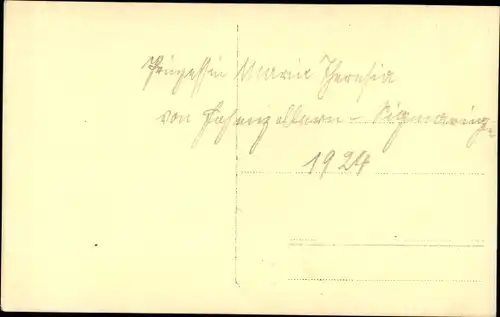 Prinzessin Maria Theresia
von Hohenzollern - Sigmaring-
1924